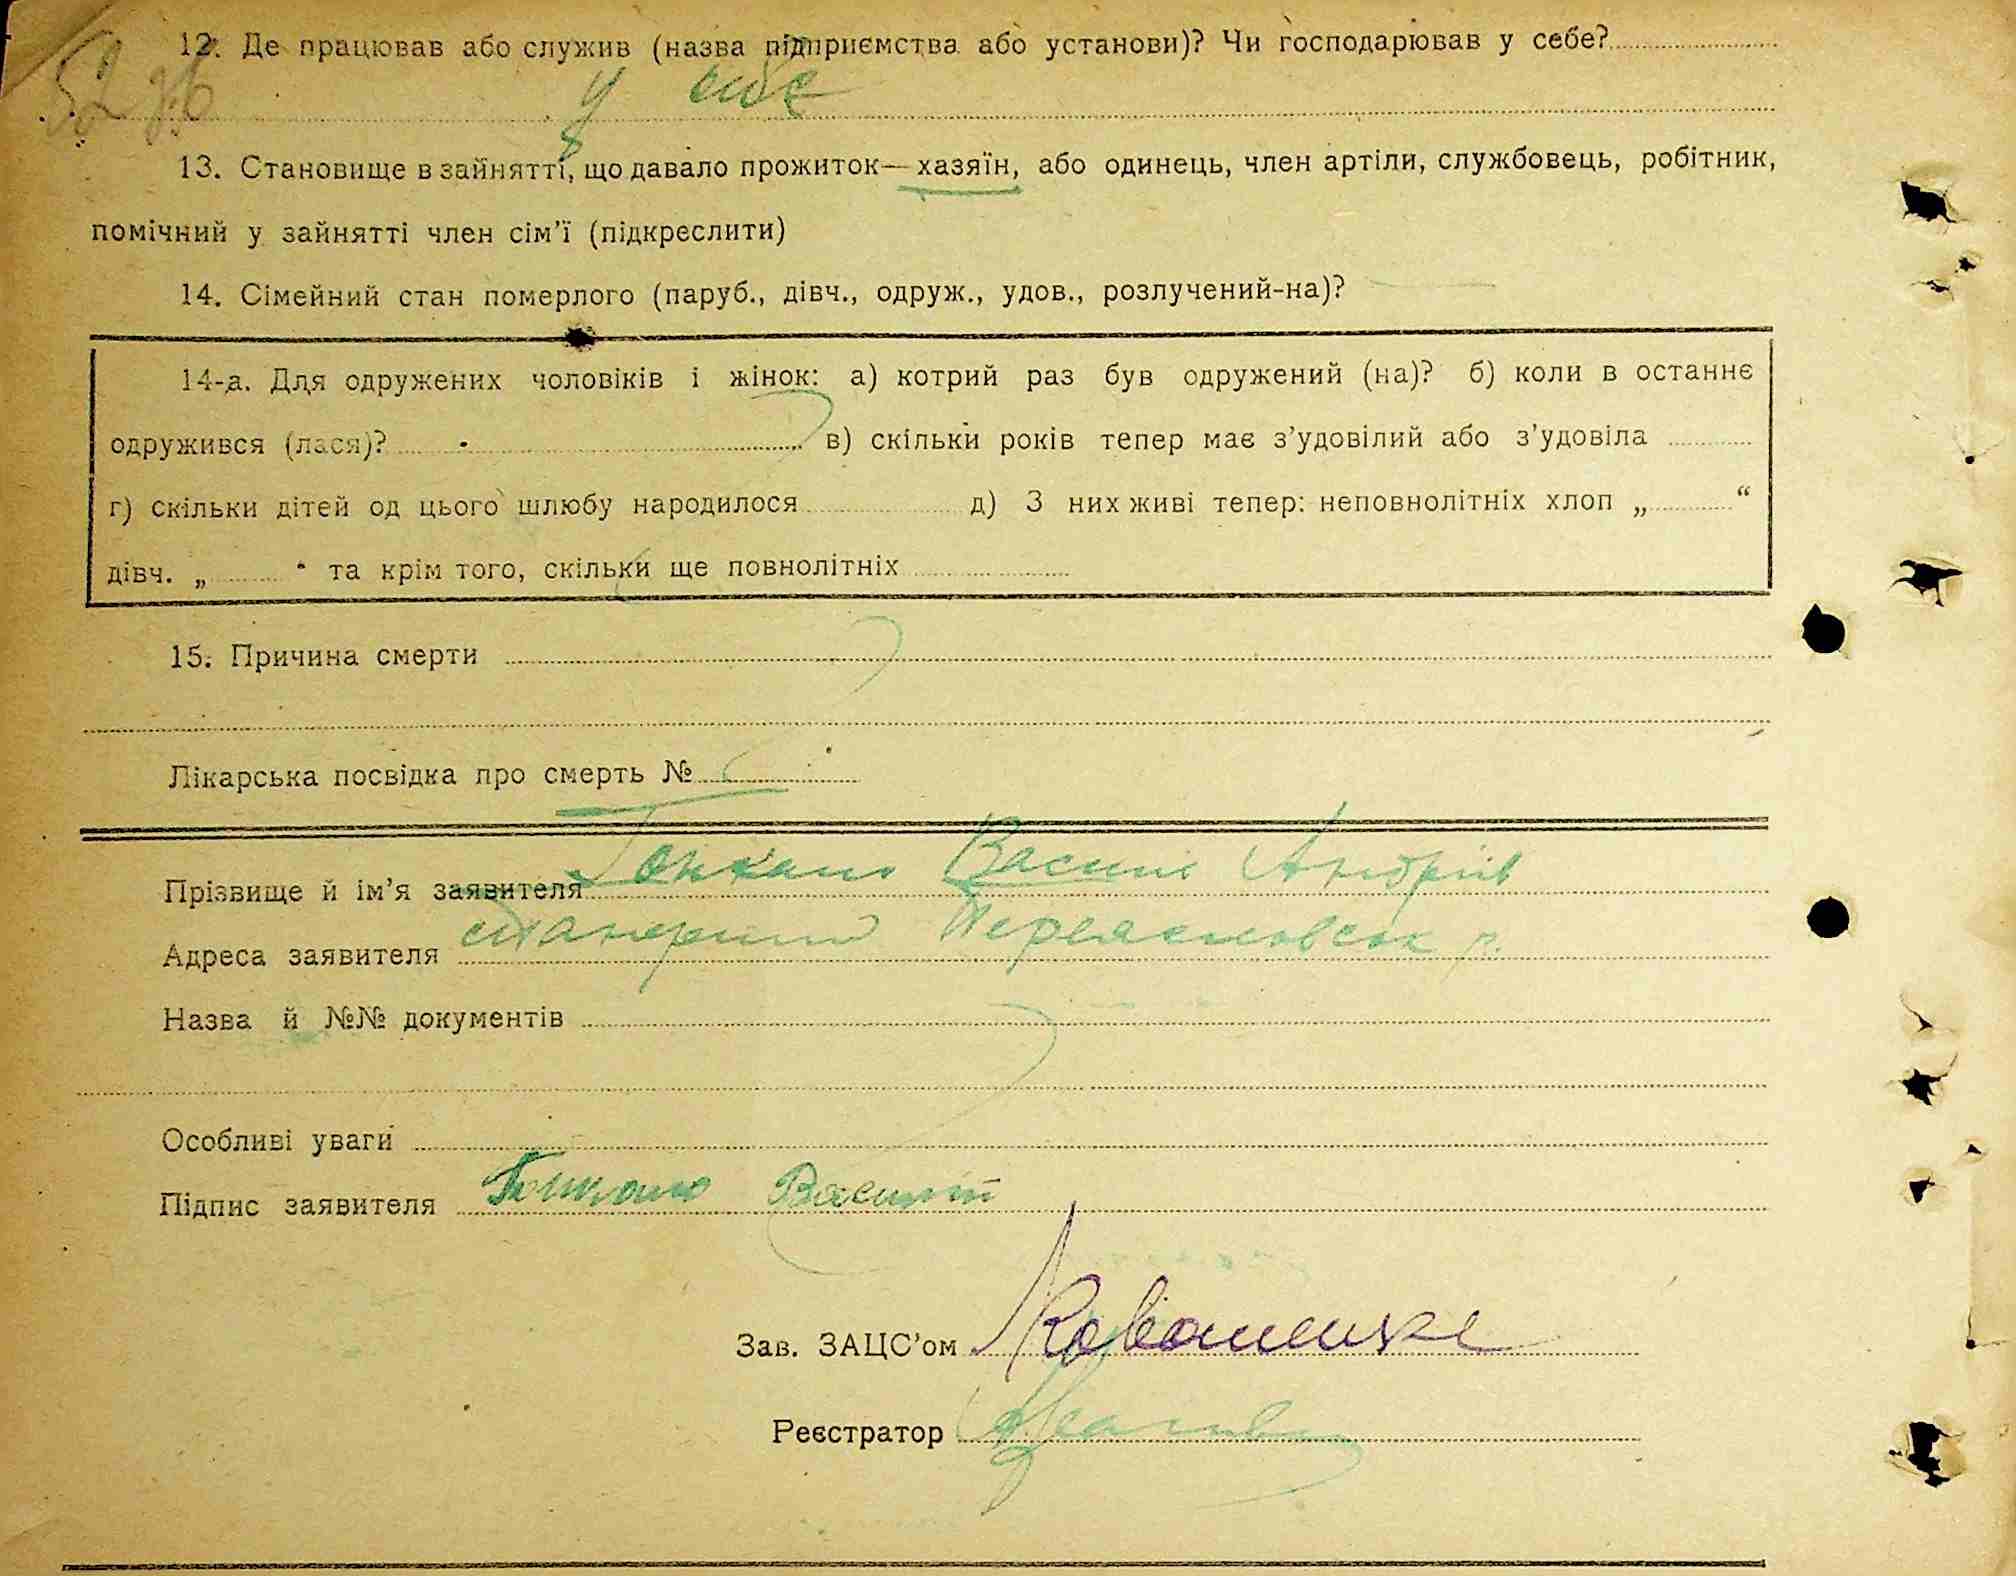 12. Де працював або служив (назва підприємства або установи)? Чи господарював у себе?
52 зв
у себе
13. Становище в зайнятті, що давало прожиток—хазяїн, або одинець, член артіли, службовець, робітник,
помічний у зайнятті член сім’ї (підкреслити)
14. Сімейний стан померлого (паруб., дівч., одруж., удов., розлучений-на)?
14-а. Для одружених чоловіків і жінок: а) котрий раз був одружений (на)? б) коли в останнє
одружився (лася)? в) скільки років тепер має з’удовілий або з’удовіла
г) скільки дітей од цього шлюбу народилося д) З них живі тепер: неповнолітніх хлоп „ “
дівч. „ “ та крім того, скільки ще повнолітніх
15. Причина смерти
Лікарська посвідка про смерть №
Прізвище й ім’я заявителя Василь Андріїв
Адреса заявителя
Назва й №№ документів
Особливі уваги
Підпис заявителя Василій
Зав. ЗАЦС’ом
Реєстратор